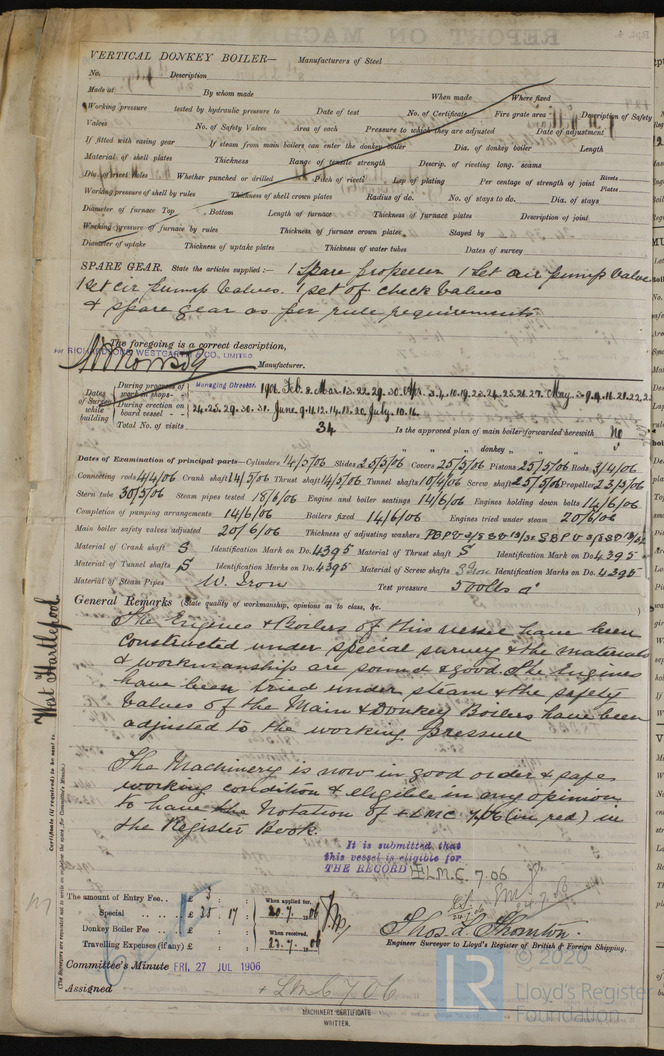 VERTICAL DONKEY BOILER— Manufacturers of Steel
No. Description
Made at By whom made When made Where fixed
Working pressure tested by hydraulic pressure to Date of test No. of Certificate Fire grate area Description of Safety
Valves No. of Safety Valves Area of each Pressure to which they are adjusted Date of adjustment
If fitted with easing gear If steam from main boilers can enter the donkey boiler Dia. of donkey boiler Length
Material of shell plates Thickness Range of tensile strength Descrip. of riveting long. seams
Dia. of rivet holes Whether punched or drilled Pitch of rivets Lap of plating Per centage of strength of joint Rivets Plates
Working pressure of shell by rules Thickness of shell crown plates Radius of do. No. of stays to do. Dia. of stays
Diameter of furnace Top Bottom Length of furnace Thickness of furnace plates Description of joint
Working pressure of furnace by rules Thickness of furnace crown plates Stayed by
Diameter of uptake Thickness of uptake plates Thickness of water tubes Dates of survey
SPARE GEAR. State the articles supplied:— 1 Spare propeller 1 Set air pump valves
1 set cir pump valves. 1 set of check valves
& spare gear as per rule requirements
The foregoing is a correct description,
FOR RICHARDSONS WESTGARTH & CO., LIMITED
Manufacturer.
Managing Director.
Dates of Survey while building
During progress of work in shops- 1906. Feb. 8. Mar. 13. 22. 29. 30. Apr. 3. 4. 10. 19. 23. 24. 25. 26. 27. May. 3. 9. 14. 18. 21. 22. 23.
During erection on board vessel - 24. 25. 29. 30. 31. June 9. 11. 12. 14. 18. 20. July. 10. 16.
Total No. of visits 34 Is the approved plan of main boiler forwarded herewith No
" " " donkey " " "
Dates of Examination of principal parts—Cylinders 14/5/06 Slides 25/5/06 Covers 25/5/06 Pistons 25/5/06 Rods 3/4/06
Connecting rods 4/4/06 Crank shaft 14/5/06 Thrust shaft 14/5/06 Tunnel shafts 10/4/06 Screw shaft 25/5/06 Propeller 23/5/06
Stern tube 30/5/06 Steam pipes tested 18/6/06 Engine and boiler seatings 14/6/06 Engines holding down bolts 14/6/06
Completion of pumping arrangements 14/6/06 Boilers fixed 14/6/06 Engines tried under steam 20/6/06
Main boiler safety valves adjusted 20/6/06 Thickness of adjusting washers
Material of Crank shaft S Identification Mark on Do. 4395 Material of Thrust shaft S Identification Mark on Do. 4395
Material of Tunnel shafts S Identification Marks on Do. 4395 Material of Screw shafts Iron Identification Marks on Do. 4395
Material of Steam Pipes W. Iron Test pressure 500 lbs
General Remarks (State quality of workmanship, opinions as to class, &c.
The Engines & Boilers of this vessel have been
constructed under special survey & the materials
& workmanship are sound & good. The Engines
have been tried under steam & the safety
valves of the Main & Donkey Boilers have been
adjusted to the working pressure
The Machinery is now in good order & safe
working condition & eligible in my opinion
to have the Notation of + LMC 7,06 (in red) in
the Register Book.
It is submitted that
this vessel is eligible for
THE RECORD + L.M.C. 7.06
24.7.06
West Hartlepool
Certificate (if required) to be sent to
(The Surveyors are requested not to write on or below the space for Committee's Minute.)
The amount of Entry Fee . . £ 3 : :
Special . . £ 35 : 17 :
Donkey Boiler Fee . . £ : :
Travelling Expenses (if any) £ : :
When applied for, 20.7.06
When received, 23.7.06
Thos. L. Thornton.
Engineer Surveyor to Lloyd's Register of British & Foreign Shipping.
Committee's Minute FRI. 27 JUL 1906
Assigned + LMC 7.06
MACHINERY CERTIFICATE
WRITTEN.
© 2020
LR Lloyd's Register
Foundation